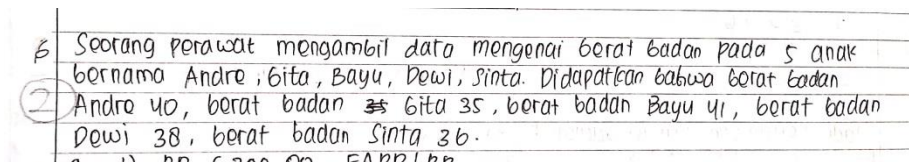 6 Seorang perawat mengambil data mengenai berat badan pada 5 anak
bernama Andre, Gita, Bayu, Dewi, Sinta. Didapatkan bahwa berat badan
2 Andre 40, berat badan Gita 35, berat badan Bayu 41, berat badan
Dewi 38, berat badan Sinta 36.